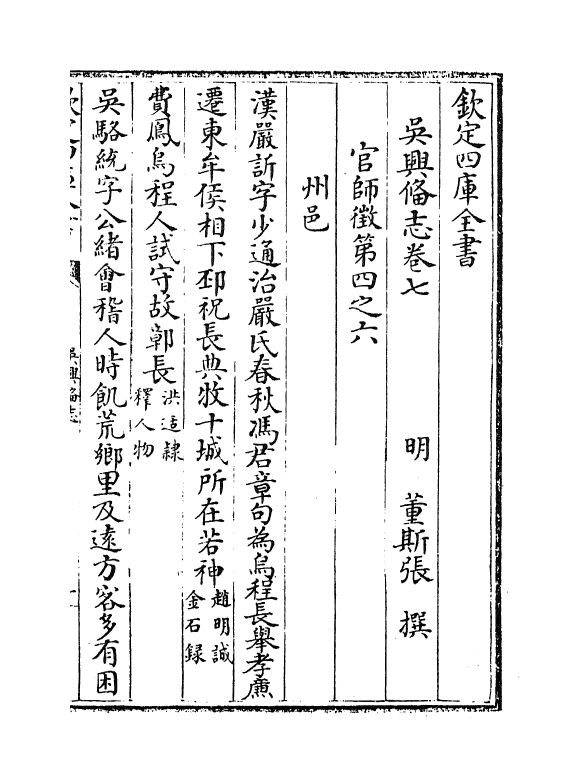 欽定四庫全書
吳興備志卷七
明 董斯張 撰
官師徵第四之六
州邑
漢嚴訢字少通治嚴氏春秋馮君章句為烏程長舉孝廉
遷東牟侯相下邳祝長典牧十城所在若神趙明誠金石録
費鳳烏程人試守故鄣長洪适隷釋人物
吳駱統字公緒會稽人時飢荒鄉里及遠方客多有困
吳興備志